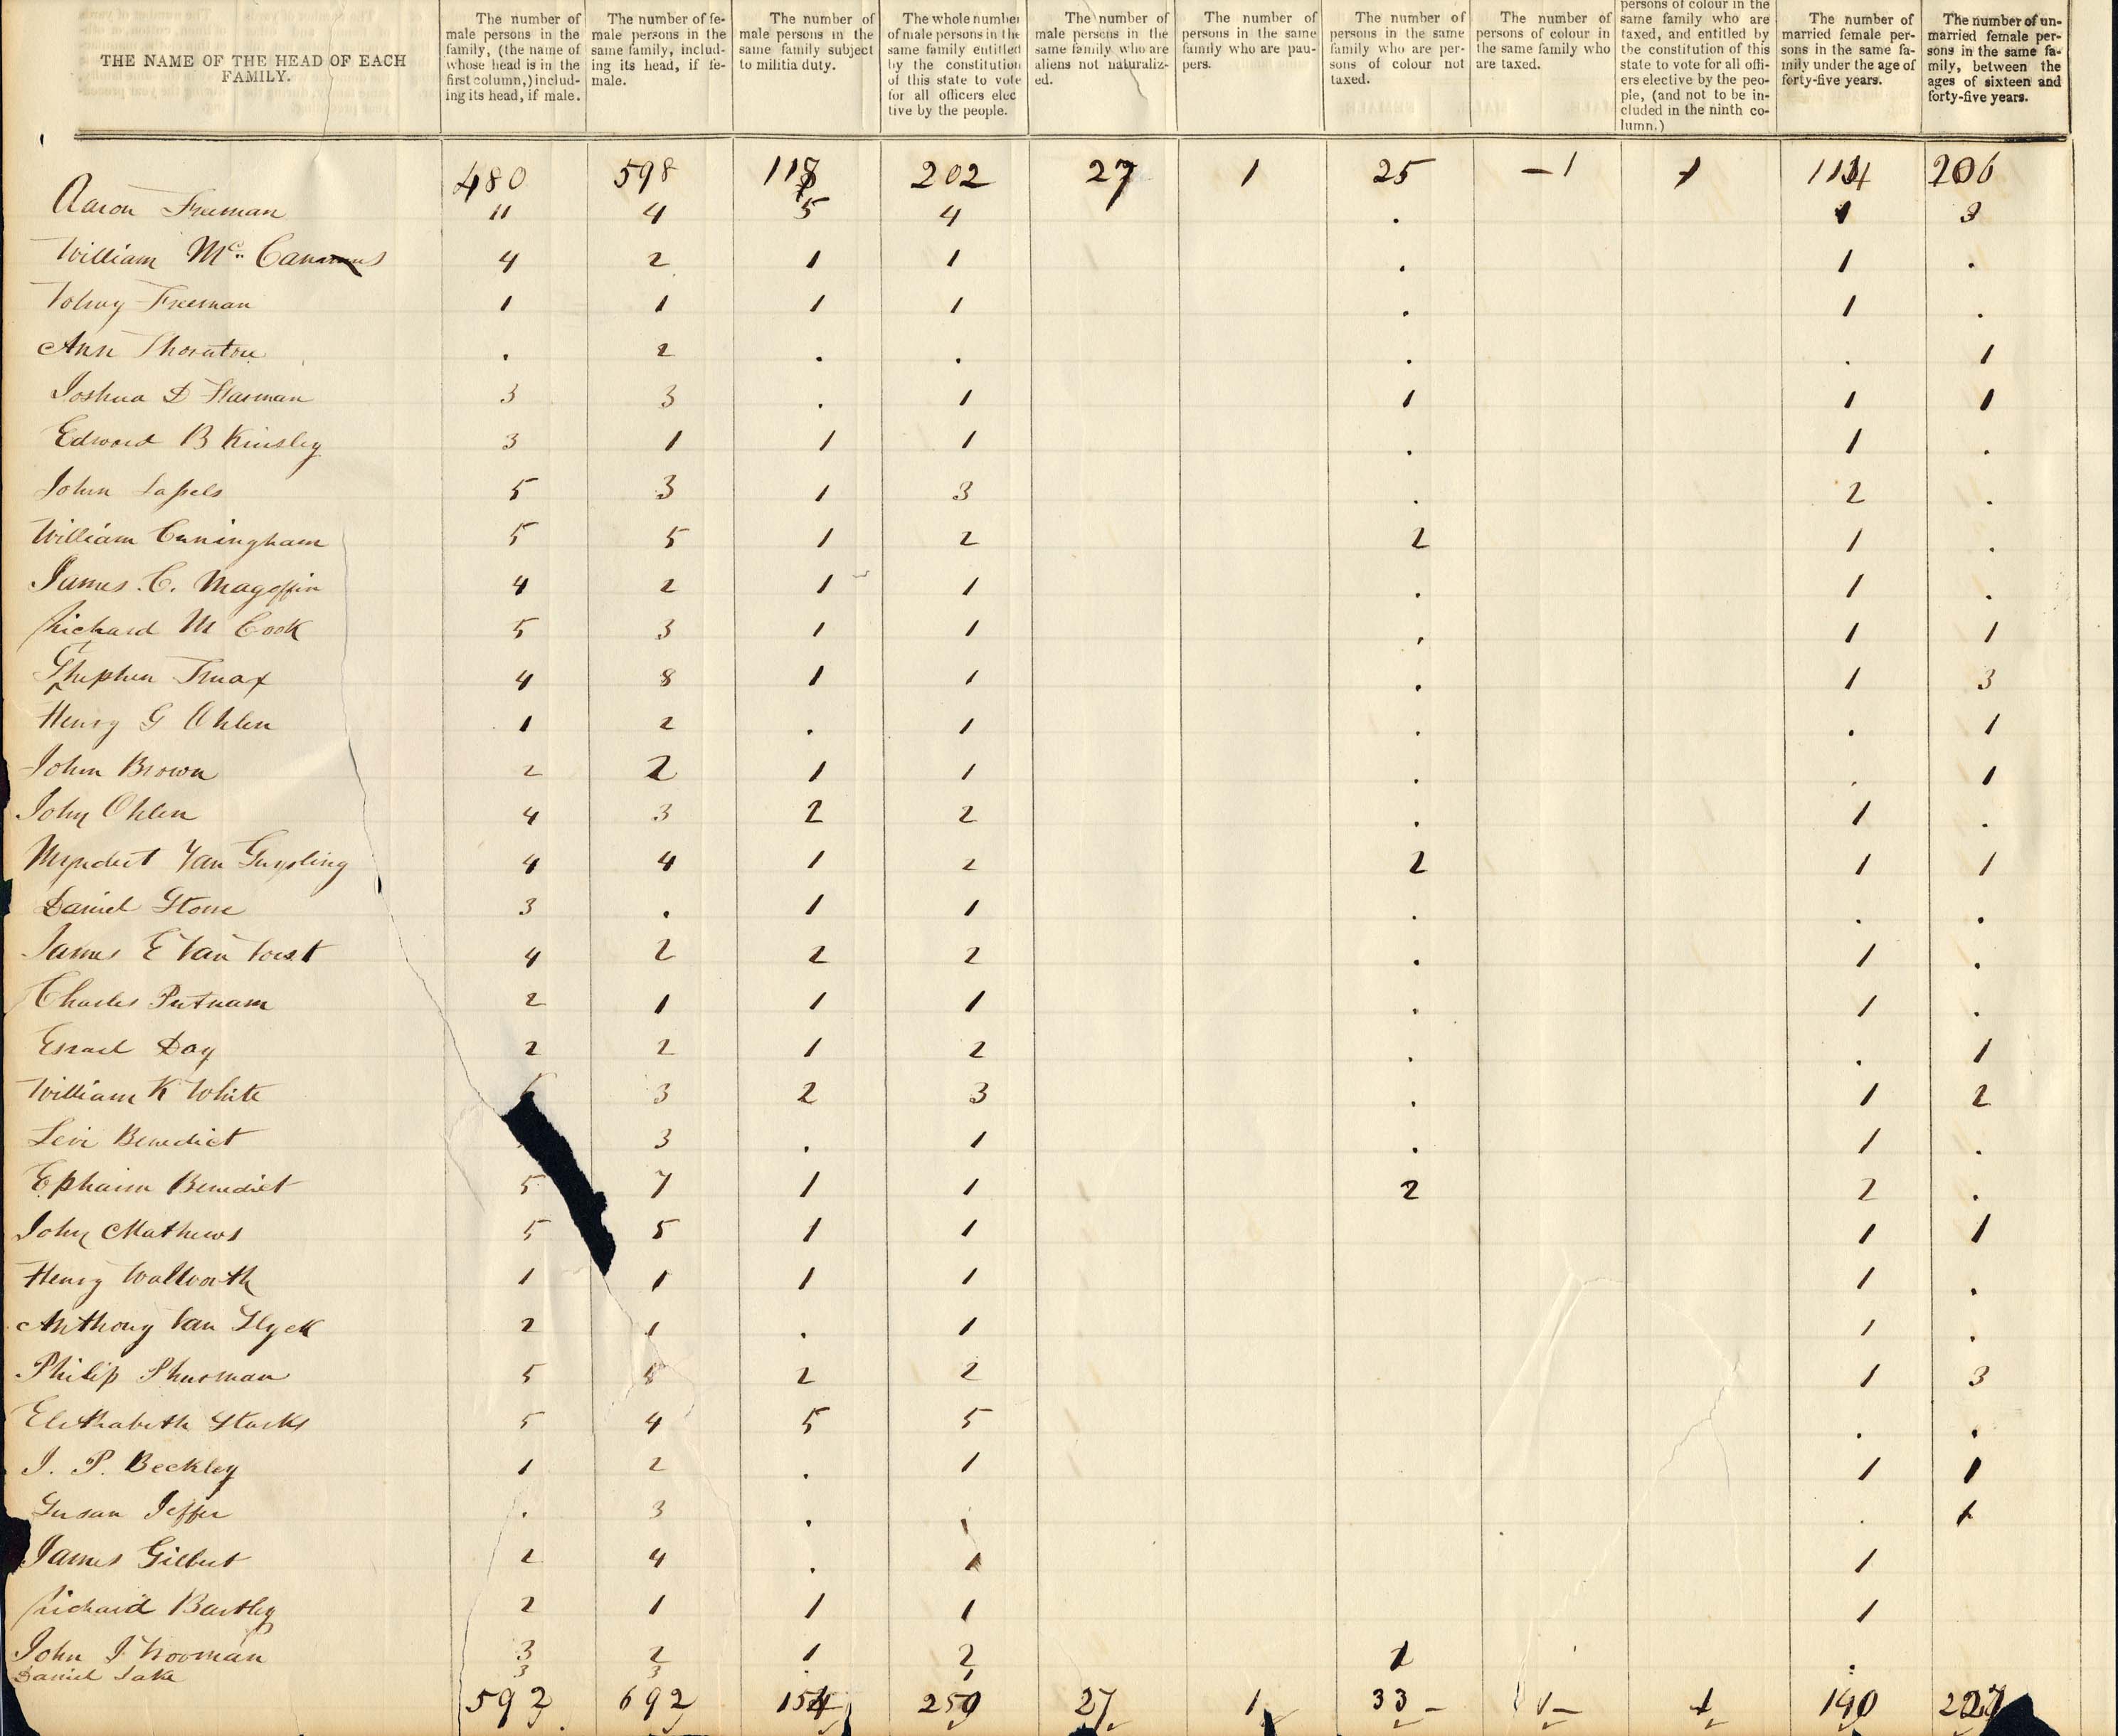 THE NAME OF THE HEAD OF EACH FAMILY.
The number of male persons in the family, (the name of whose head is in the first column,) including its head, if male.
The number of female persons in the same family, including its head, if female.
The number of male persons in the same family subject to militia duty.
The whole number of male persons in the same family entitled by the constitution of this state to vote for all officers elective by the people.
The number of male persons in the same family who are aliens not naturalized.
The number of persons in the same family who are paupers.
The number of persons in the same family who are persons of colour not taxed.
The number of persons of colour in the same family who are taxed.
persons of colour in the same family who are taxed, and entitled by the constitution of this state to vote for all officers elective by the people, (and not to be included in the ninth column.)
The number of married female persons in the same family under the age of forty-five years.
The number of unmarried female persons in the same family, between the ages of sixteen and forty-five years.
480 598 118 202 27 1 25 -1 1 114 206
Aaron Freeman 11 4 5 4 . 1 3
William Mc. 4 2 1 1 . 1 .
Tolmy Freeman 1 1 1 1 . 1 .
Ann Thornton . 2 . . . . 1
Joshua D Harman 3 3 . 1 1 1 1
Edward B Kinsley 3 1 1 1 . 1 .
John 5 3 1 3 . 2 .
William Cuningham 5 5 1 2 2 1 .
James . C. Magoffin 4 2 1 1 . 1 .
Richard M Cook 5 3 1 1 . 1 1
Sthephen Truax 4 8 1 1 . 1 3
Henry G Ohlen 1 2 . 1 . . 1
John Brown 2 2 1 1 . . 1
John Ohlen 4 3 2 2 . 1 .
Myndert Van Guysling 4 4 1 2 2 1 1
Daniel Stone 3 . 1 1 . . .
James E Van Vorst 4 2 2 2 . 1 .
Charles Putnam 2 1 1 1 . 1 .
Esrael Day 2 2 1 2 . . 1
William K White 6 3 2 3 . 1 2
Levi Benedict 3 . 1 . 1 .
Ephaim Benedict 5 7 1 1 2 2 .
John Mathews 5 5 1 1 1 1
Henry Wallworth 1 1 1 1 1 .
Anthony Van Slyck 2 1 . 1 1 .
Philip Shurman 5 2 2 1 3
Elithabeth Starks 5 4 5 5 . .
J. P. Beckley 1 2 . 1 1 1
Susan Jeffer . 3 . . 1
James Gilbert 2 4 . 1 1
Richard Bartley 2 1 1 1 1
John J Vrooman 3 2 1 2 1 .
Daniel Lake 3 3 . 1
592 692 154 259 27 1 33 - 1- 1 140 227